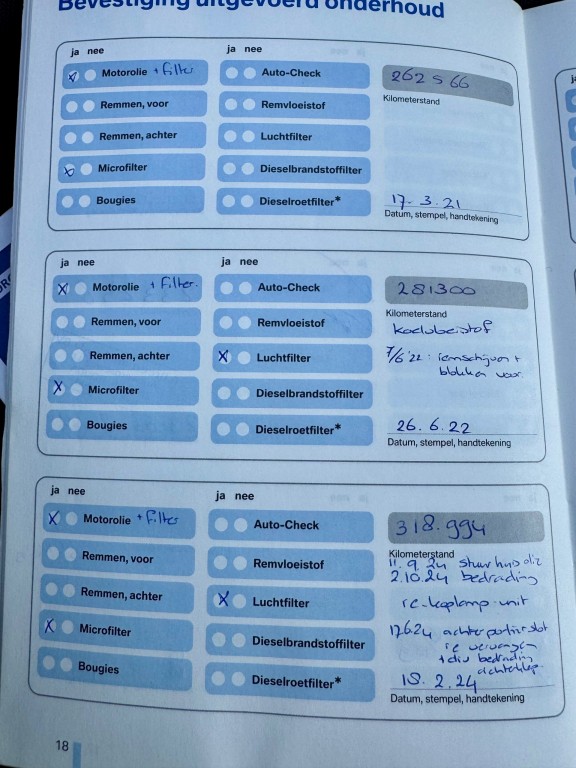 Bevestiging uitgevoerd onderhoud
ja nee
ja nee
Motorolie + filter
Auto-Check
262566
Kilometerstand
Remmen, voor
Remvloeistof
Remmen, achter
Luchtfilter
Microfilter
Dieselbrandstoffilter
Bougies
Dieselroetfilter*
17.3.21
Datum, stempel, handtekening
ja nee
ja nee
Motorolie + filter
Auto-Check
281300
Kilometerstand
Remmen, voor
Remvloeistof
koelvloeistof
Remmen, achter
Luchtfilter
7/6 '22: remschijven +
blokken voor
Microfilter
Dieselbrandstoffilter
Bougies
Dieselroetfilter*
26.6.22
Datum, stempel, handtekening
ja nee
ja nee
Motorolie + filter
Auto-Check
318.994
Kilometerstand
Remmen, voor
Remvloeistof
11.9.24 stuurhuis olie
2.10.24 bedrading
Remmen, achter
Luchtfilter
re-koplamp unit
Microfilter
Dieselbrandstoffilter
17624 achterportierslot
re vervangen
+ div bedrading
achterklep
Bougies
Dieselroetfilter*
18.2.24
Datum, stempel, handtekening
18
ja